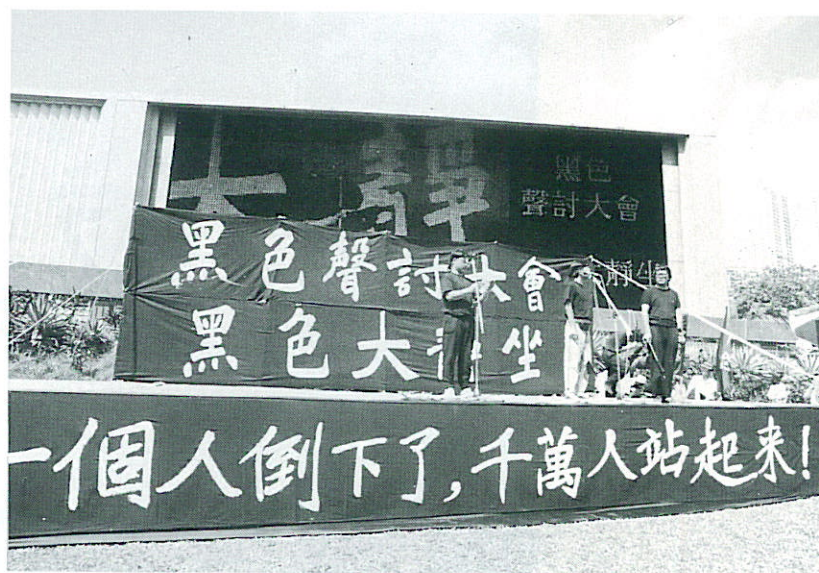 大靜
黑色
聲討大會
靜坐
黑色聲討大會
黑色大靜坐
一個人倒下了，千萬人站起来！